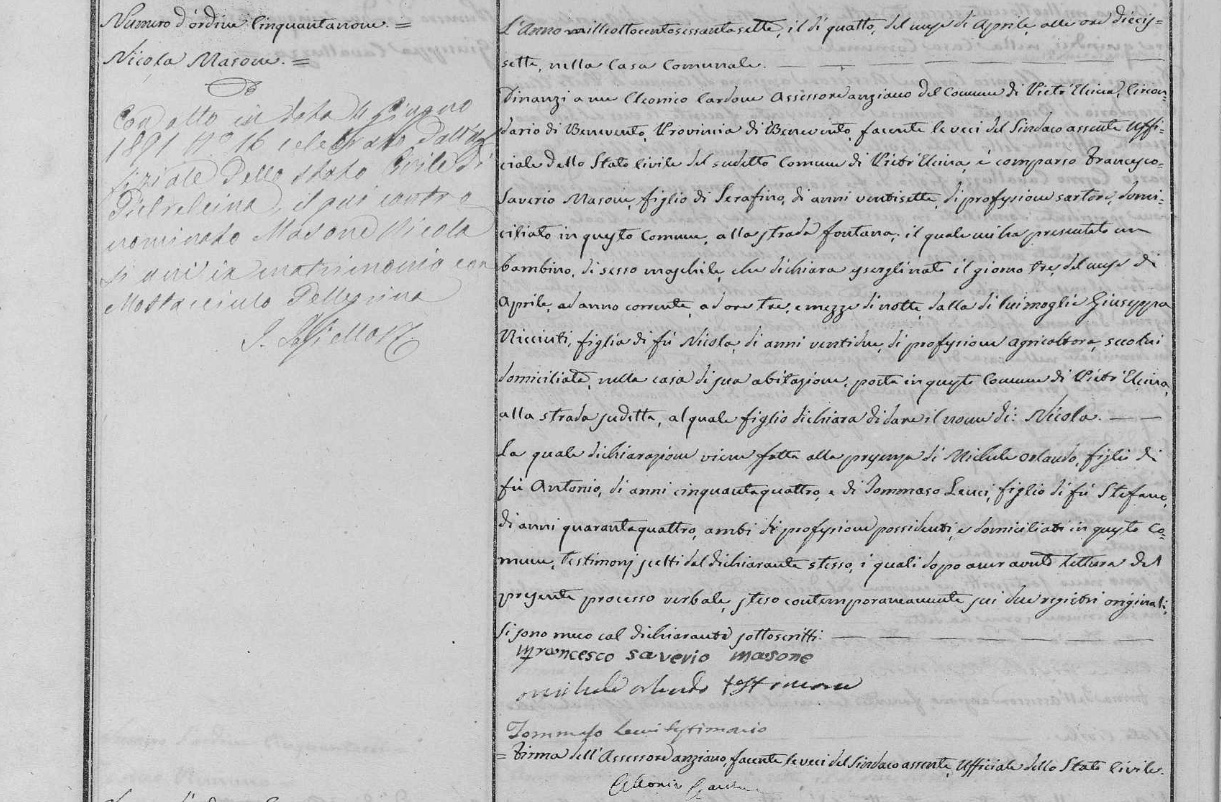 Numero d'ordine Cinquantanove =
Nicola Masone =
Con atto in data 4 Giugno
1891 Nº 16 celebrato dall'Uf
fiziale dello stato Civile di
Pietrelcina, il qui contro
nominato Masone Nicola
si unì in matrimonio con
Mostacciulo Pellegrina
L'Anno milleottocentosessantasette, il dì quatto, del mese di Aprile, alle ore diecis-
sette, nella Casa Comunale.
Dinanzi a me Cardone Assessore anziano del Comune di Pietr'Elcina, Circon-
dario di Benevento Provincia di Benevento, facente le veci del Sindaco assente Uffi-
ciale dello Stato Civile del sudetto Comune di Pietr'Elcina, è comparso Francesco
Saverio Masone, figlio di Serafino, di anni ventisette, di professione sartore, domi-
ciliato in questo Comune, alla strada fontana, il quale mi ha presentato un
bambino, di sesso maschile, che dichiara essergli nato il giorno tre del mese di
Aprile, ad anno corrente, ad ore tre, e mezze di notte, dalla di lui moglie Giuseppa
Ricciuti, figlia di fù Nicola, di anni ventidue, di professione agricoltora, secolui
domiciliata, nella casa di sua abitazione, posta in questo Comune di Pietr'Elcina,
alla strada sudetta, al quale figlio dichiara di dare il nome di: Nicola.
La quale dichiarazione viene fatta alla presenza di Michele Orlando, figlio di
fù Antonio, di anni cinquantaquattro, e di Tommaso Lenci, figlio di fù Stefano,
di anni quarantaquattro, ambi di professione possidenti, e domiciliati in questo Co-
mune, testimonj scelti dal dichiarante stesso, i quali dopo aver avuto lettura del
presente processo verbale, steso contemporaneamente sui due registri originali,
si sono meco col dichiarante sottoscritti:
Francesco saverio masone
michele orlando testimone
Tommaso Lenci testimonio
= Firma dell'Assessore anziano, facente le veci del Sindaco assente, Uffiziale dello Stato Civile.